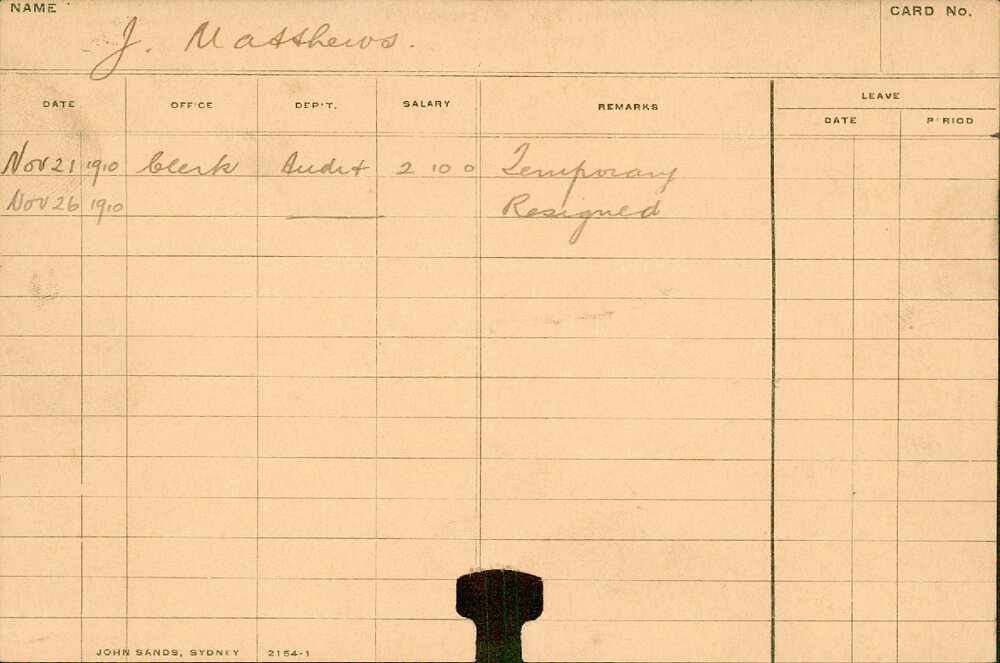 NAME J. Matthews. CARD No.
DATE OFFICE DEP'T. SALARY REMARKS LEAVE
DATE PERIOD
Nov 21 1910 Clerk Audit 2 10 0 Temporary
Nov 26 1910 Resigned
JOHN SANDS, SYDNEY 2154-1